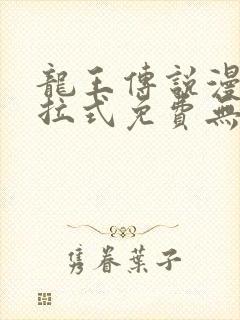 龍王傳說漫
拉式免費無
雋眷葉子